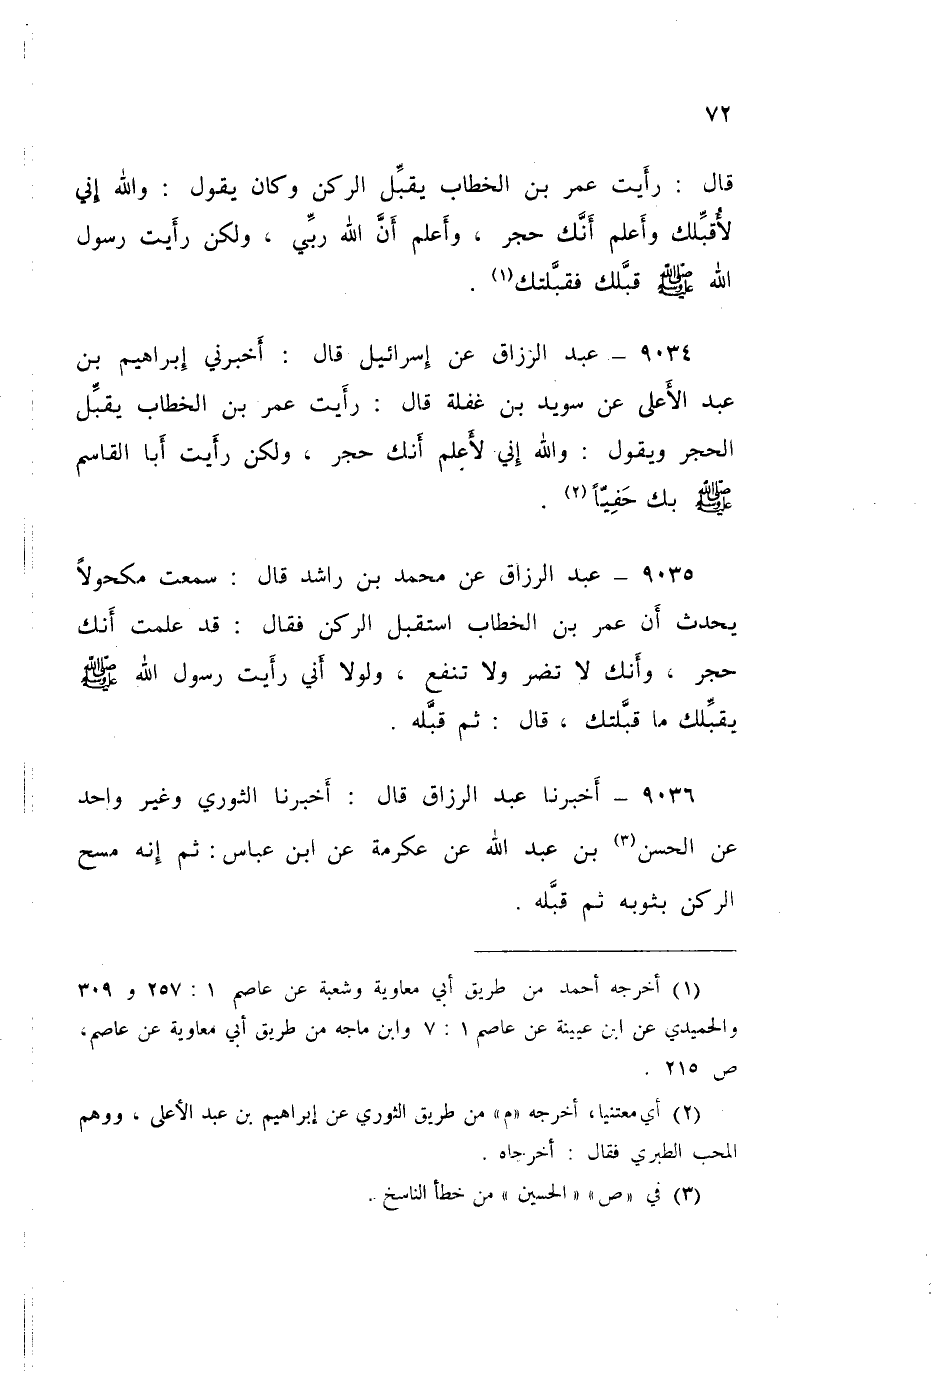 ٧٢
قال : رأَيت عمر بن الخطاب يقبِّل الركن وكان يقول : والله إني
لأُقبِّلك وأَعلم أَنَّك حجر ، وأَعلم أَنَّ الله ربِّي ، ولكن رأَيت رسول
الله ﷺ قبَّلك فقبَّلتك(١) .
٩٠٣٤ – عبد الرزاق عن إسرائيل قال : أَخبرني إبراهيم بن
عبد الأَعلى عن سويد بن غفلة قال : رأَيت عمر بن الخطاب يقبِّل
الحجر ويقول : والله إني لأَعلم أَنك حجر ، ولكن رأَيت أَبا القاسم
ﷺ بك حَفِيّاً(٢) .
٩٠٣٥ – عبد الرزاق عن محمد بن راشد قال : سمعت مكحولاً
يحدث أَن عمر بن الخطاب استقبل الركن فقال : قد علمت أَنك
حجر ، وأَنك لا تضر ولا تنفع ، ولولا أَني رأَيت رسول الله ﷺ
يقبِّلك ما قبَّلتك ، قال : ثم قبَّله .
٩٠٣٦ – أَخبرنا عبد الرزاق قال : أَخبرنا الثوري وغير واحد
عن الحسن(٣) بن عبد الله عن عكرمة عن ابن عباس : ثم إنه مسح
الركن بثوبه ثم قبَّله .
(١) أخرجه أحمد من طريق أبي معاوية وشعبة عن عاصم ١ : ٢٥٧ و ٣٠٩
والحميدي عن ابن عيينة عن عاصم ١ : ٧ وابن ماجه من طريق أبي معاوية عن عاصم،
ص ٢١٥ .
(٢) أي معتنيا، أخرجه «م» من طريق الثوري عن إبراهيم بن عبد الأعلى ، ووهم
المحب الطبري فقال : أخرجاه .
(٣) في «ص» « الحسين » من خطأ الناسخ .